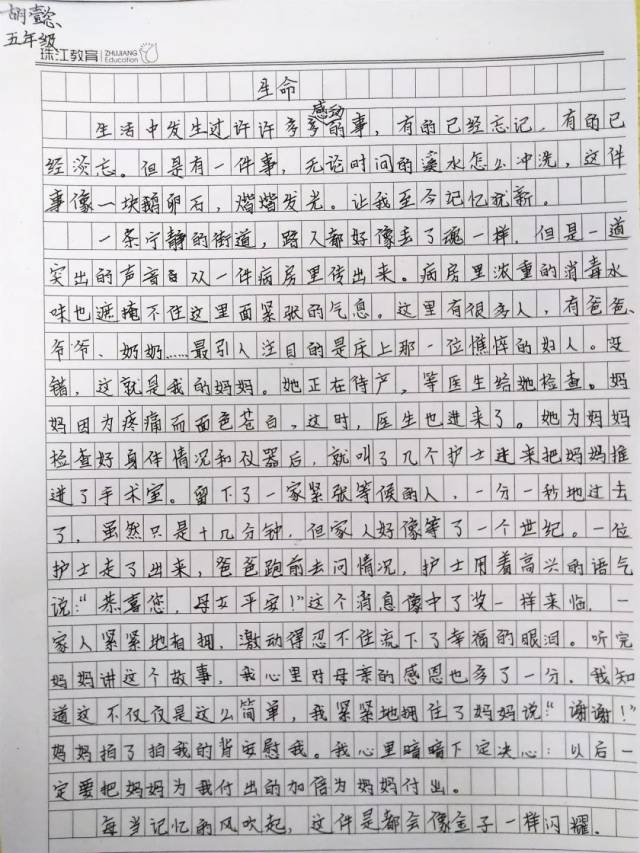 胡懿
五年级
珠江教育 ZHUJIANG Education
生命
感动
生活中发生过许许多多的事，有的已经忘记，有的已
经淡忘。但是有一件事，无论时间的溪水怎么冲洗，这件
事像一块鹅卵石，熠熠发光。让我至今记忆犹新。
一条宁静的街道，路人都好像丢了魂一样，但是一道
突出的声音从一件病房里传出来。病房里浓重的消毒水
味也遮掩不住这里面紧张的气息。这里有很多人，有爸爸、
爷爷、奶奶……最引人注目的是床上那一位憔悴的妇人。没
错，这就是我的妈妈。她正在待产，等医生给她检查。妈
妈因为疼痛而面色苍白，这时，医生也进来了。她为妈妈
检查好身体情况和仪器后，就叫了几个护士进来把妈妈推
进了手术室。留下了一家紧张等候的人，一分一秒地过去
了，虽然只是十几分钟，但家人好像等了一个世纪。一位
护士走了出来，爸爸跑前去问情况，护士用着高兴的语气
说：“恭喜您，母女平安！”这个消息像中了奖一样来临，一
家人紧紧地相拥，激动得忍不住流下了幸福的眼泪。听完
妈妈讲这个故事，我心里对母亲的感恩也多了一分，我知
道这不仅仅是这么简单，我紧紧地拥住了妈妈说：“谢谢！”
妈妈拍了拍我的背安慰我。我心里暗暗下定决心：以后一
定要把妈妈为我付出的加倍为妈妈付出。
每当记忆的风吹起，这件是都会像金子一样闪耀。